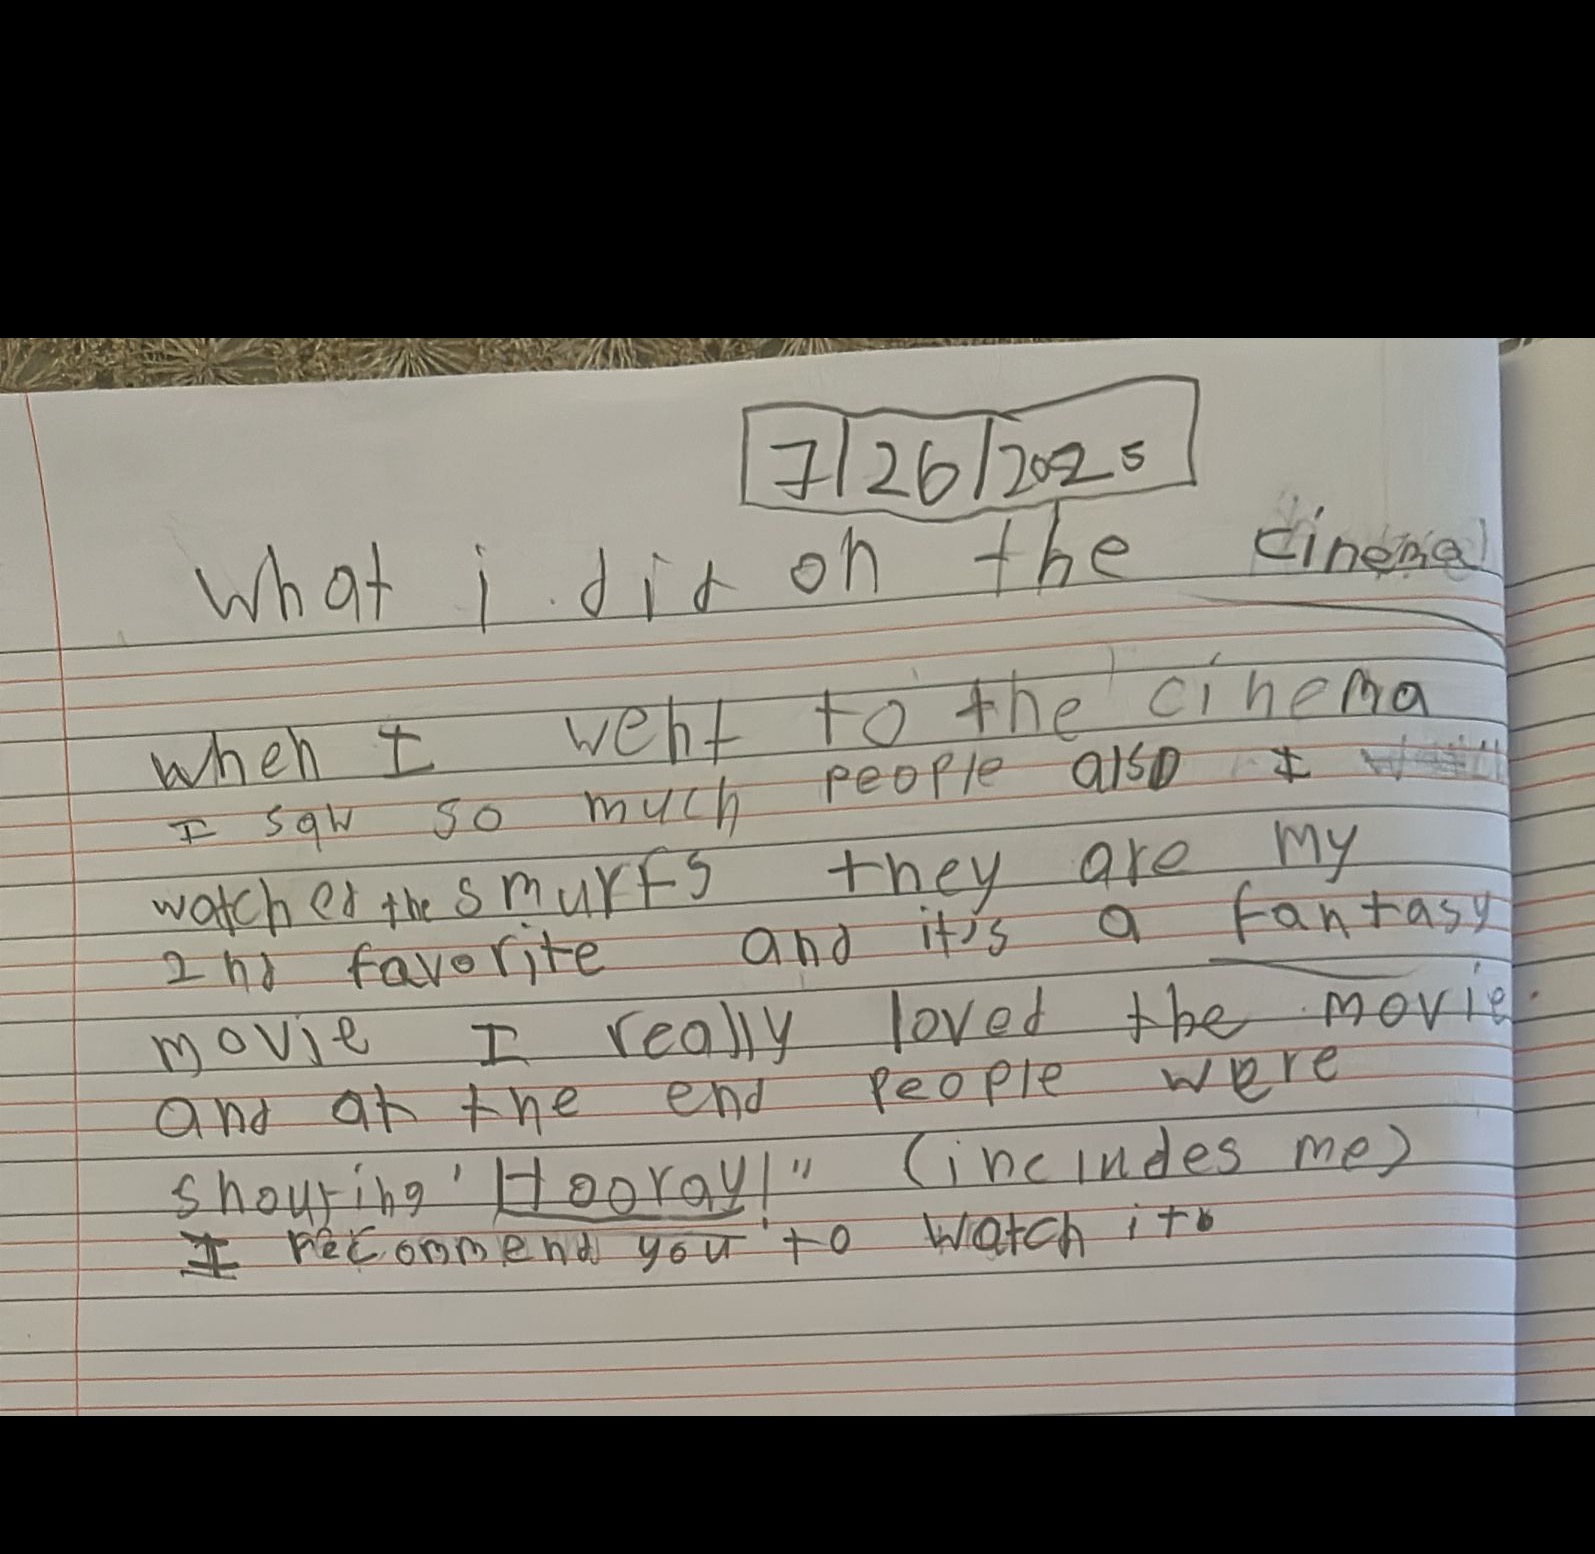 7/26/2025
What i did on the cinema
When I went to the cinema
I saw so much people also I
watched the smurfs they are my
2nd favorite and it's a fantasy
movie I really loved the movie
and at the end people were
shouting "Hooray!" (includes me)
I recommend you to watch it.